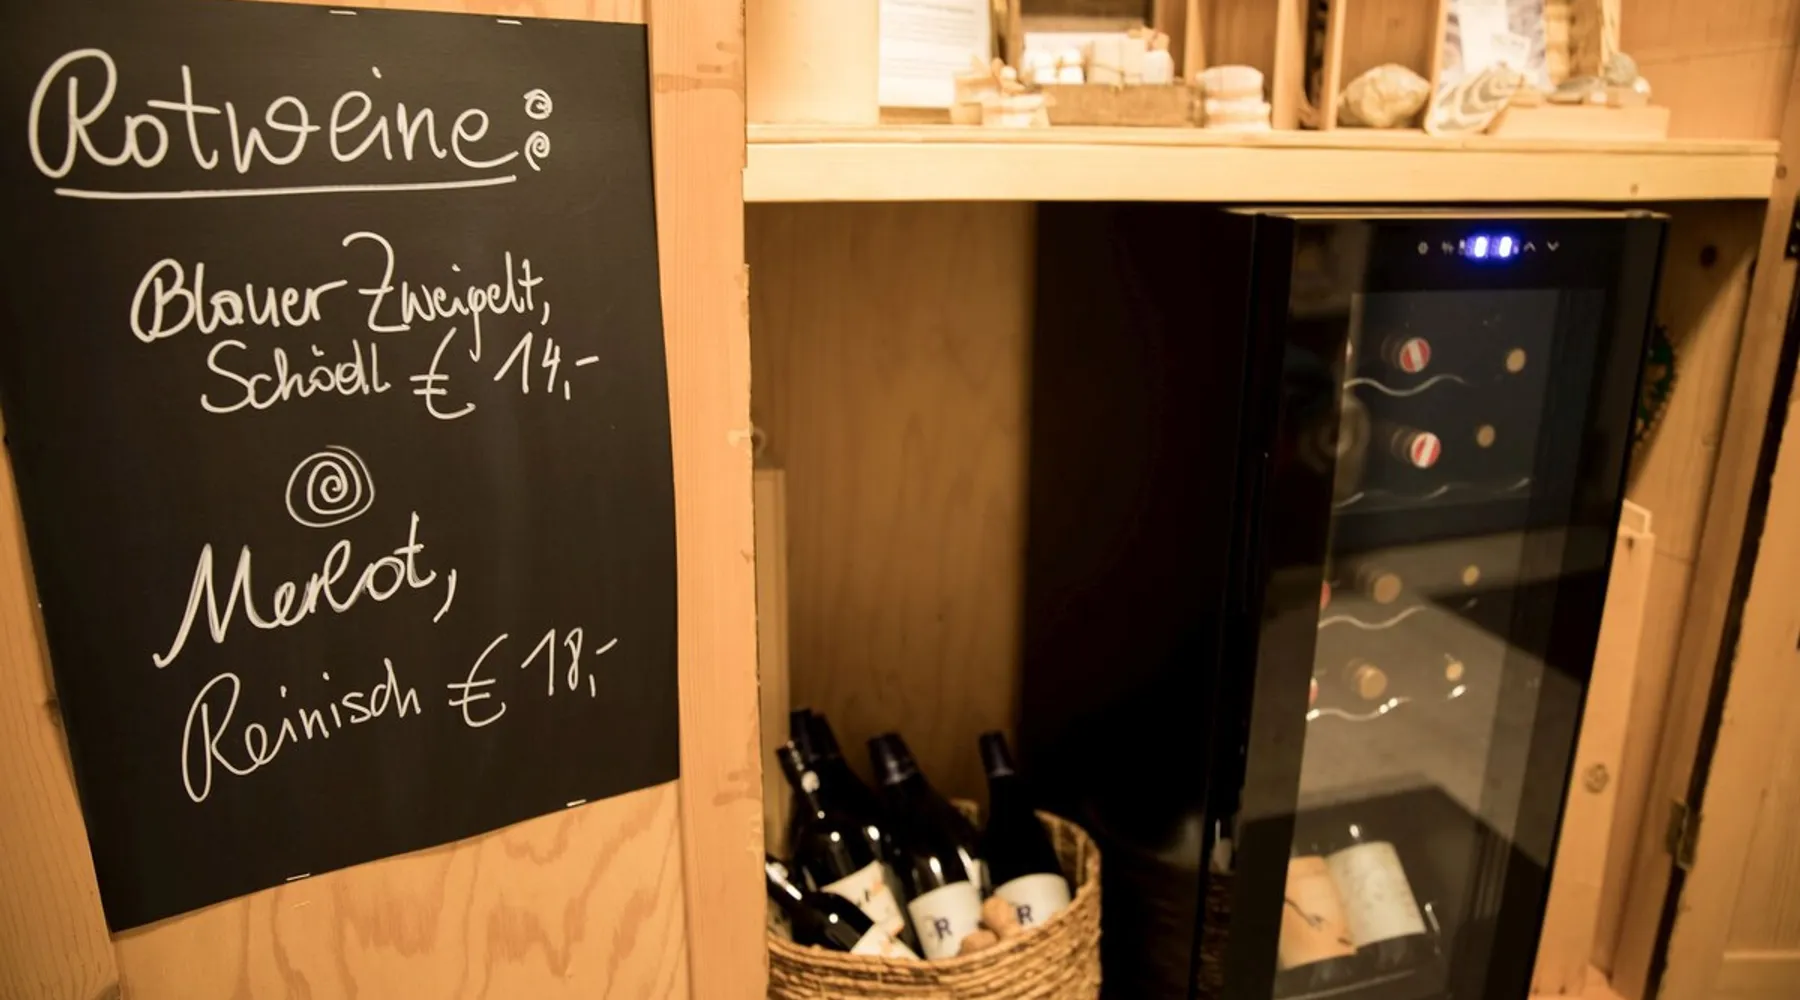 Rotweine:
Blauer Zweigelt,
Schödl € 14,-
Merlot,
Reinisch € 18,-
R
R